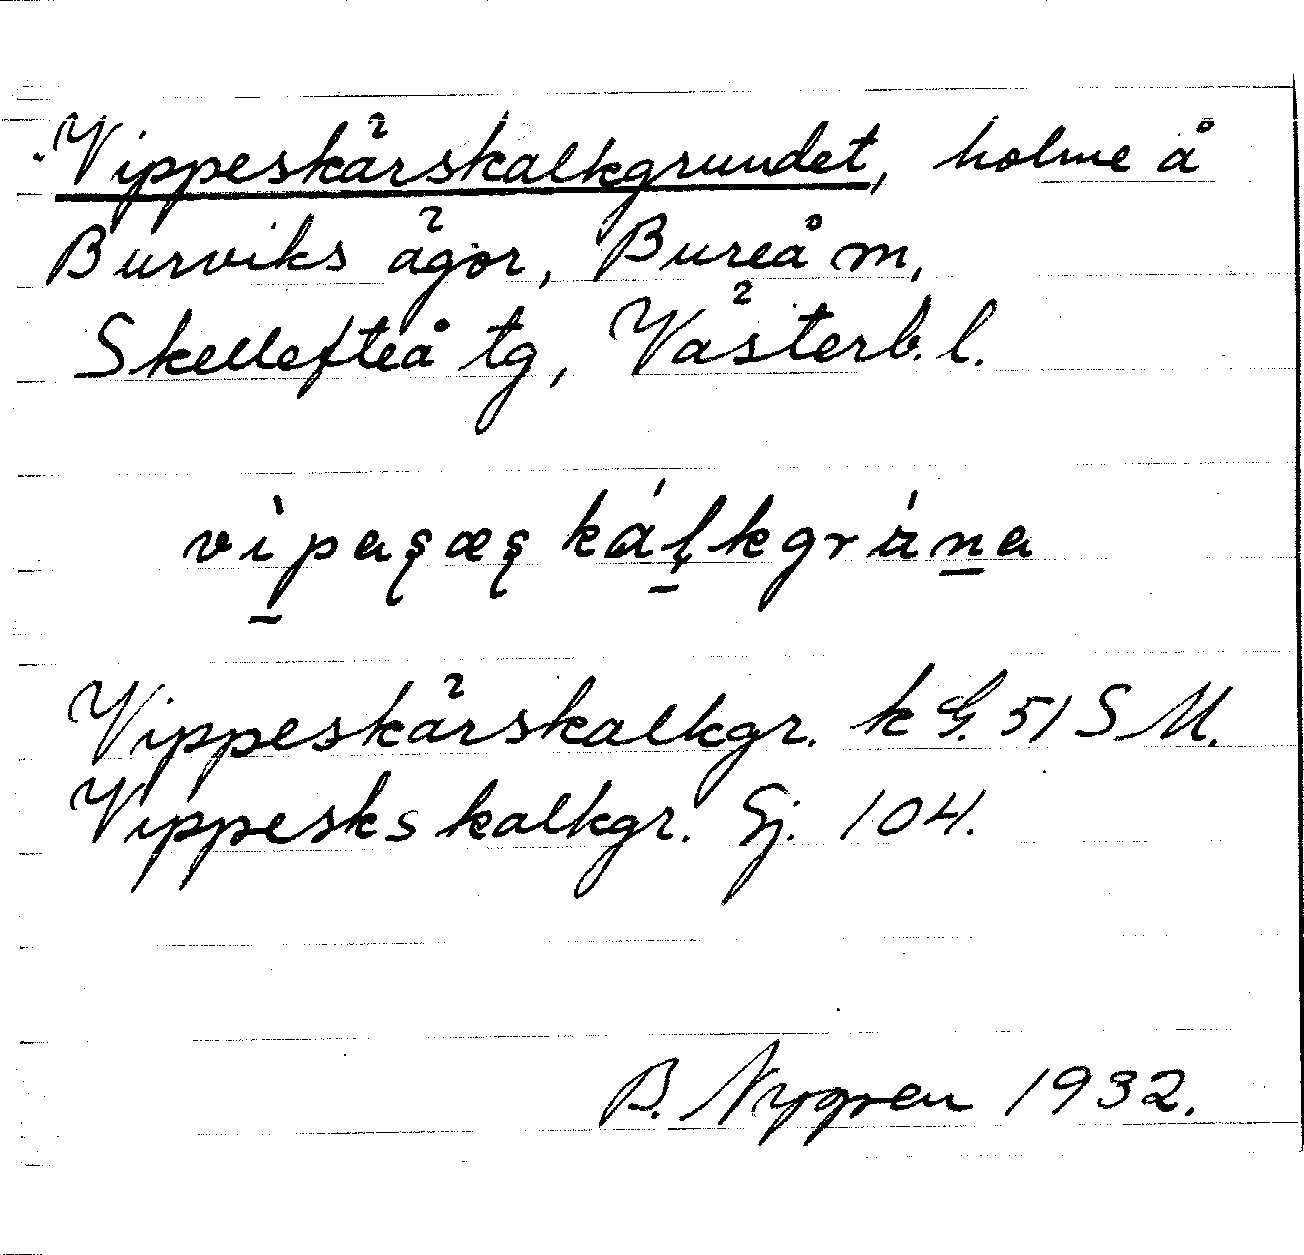 Vippeskärskalkgrundet, holme å
Burviks ägor, Bureå m,
Skellefteå tg, Västerb. l.
Vippeskärskalkgr. k G. 51 S M.
Vippesks kalkgr. Gj. 104.
B. Nygren 1932.